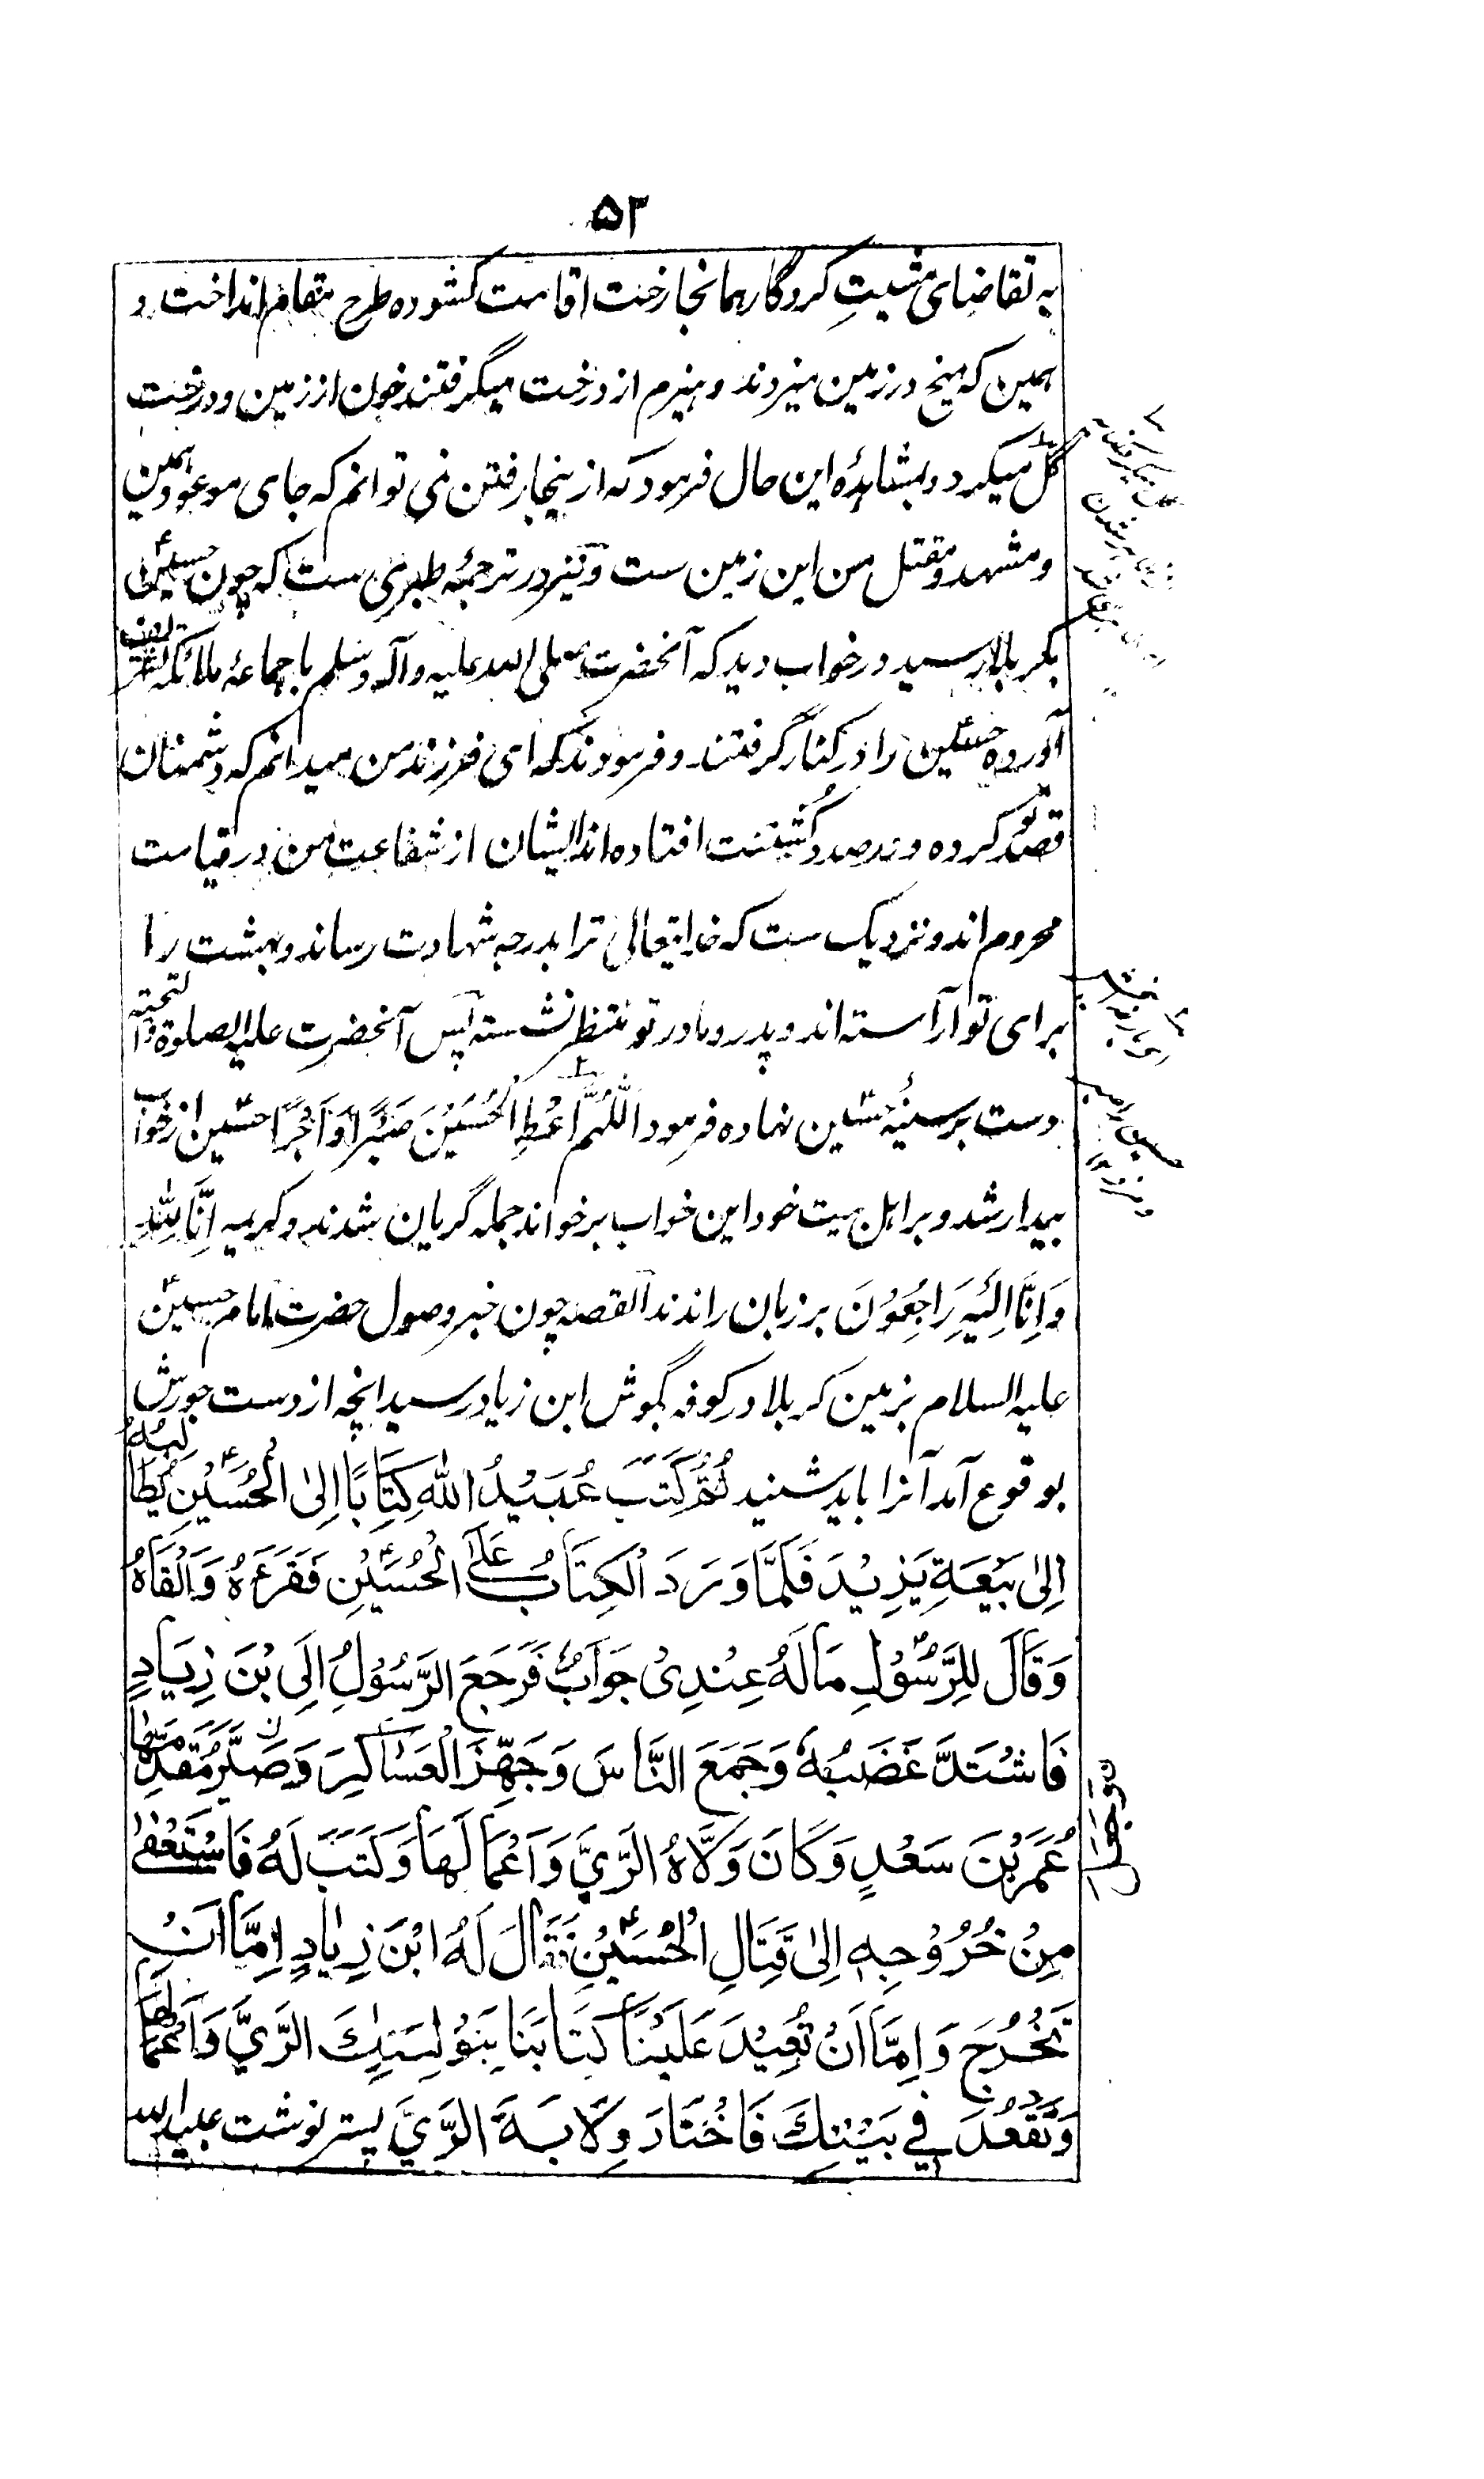 ۵۲
به تقاضای مشیتِ کردگار همانجا رخت اقامت کشوده طرح مقام انداخت و
همین که میخ در زمین میزدند و هیزم از درخت میگرفتند خون از زمین و درخت
گل میکرد و بمشاهدهٔ این حال فرمود که ازینجا رفتن نمی توانم که جای موعود همین
و مشهد و مقتل من این زمین ست و نیز در ترجمهٔ طبری ست که چون حسین
بکربلا رسید در خواب دید که آنحضرت صلی الله علیه وآله وسلم با جماعهٔ ملائکه تشریف
آورده حسین را در کنار گرفتند و فرمودند که ای فرزند من میدانم که دشمنان
قصد تو کرده و در صدد کُشتنت افتاده اند ایشان از شفاعت من در قیامت
محروم اند و نزدیک ست که خدایتعالی ترا بدرجه شهادت رساند و بهشت را
برای تو آراسته اند و پدر و مادر تو منتظر نشسته پس آنحضرت علیه الصلوة والتحیّه
دست بر سینهٔ حسین نهاده فرمود اَللّٰهُمَّ اَعْطِ الْحُسَیْنَ صَبْرًا وَّاَجْرًا حسین از خواب
بیدار شد و بر اهل بیت خود این خواب بر خواند جمله گریان شدند و کریمه اِنَّا لِلّٰهِ
وَاِنَّا اِلَیْهِ رَاجِعُوْنَ بر زبان راندند القصه چون خبر وصول حضرت امام حسین
علیه السلام بزمین کربلا در کوفه بگوش ابن زیاد رسید انچه از دست جورش
بوقوع آمد آنرا باید شنید ثُمَّ کَتَبَ عُبَیْدُ اللّٰهِ کِتَابًا اِلَی الْحُسَیْنِ یُطَالِبُهُ
اِلٰی بَیْعَةِ یَزِیْدَ فَلَمَّا وَرَدَ الْکِتَابُ عَلَی الْحُسَیْنِ فَقَرَءَهُ وَاَلْقَاهُ
وَقَالَ لِلرَّسُوْلِ مَا لَهُ عِنْدِیْ جَوَابٌ فَرَجَعَ الرَّسُوْلُ اِلَی بْنِ زِیَادٍ
فَاشْتَدَّ غَضَبُهُ وَجَمَعَ النَّاسَ وَجَهَّزَ الْعَسَاکِرَ وَصَیَّرَ مُقَدِّمَتَهَا
عُمَرَ بْنَ سَعْدٍ وَکَانَ وَلَّاهُ الرَّیَّ وَاَعْمَالَهَا وَکَتَبَ لَهُ فَاسْتَعْفٰی
مِنْ خُرُوْجِهٖ اِلٰی قِتَالِ الْحُسَیْنِ فَقَالَ لَهُ ابْنَ زِیَادٍ اِمَّا اَنْ
تَخْرُجَ وَاِمَّا اَنْ تُعِیْدَ عَلَیْنَا کِتَابَنَا بِتَوْلِیَتِکَ الرَّیَّ وَاَعْمَالَهَا
وَتَقْعُدَ فِیْ بَیْتِکَ فَاخْتَارَ وِلَایَةَ الرَّیِّ پستر نوشت عبیدالله